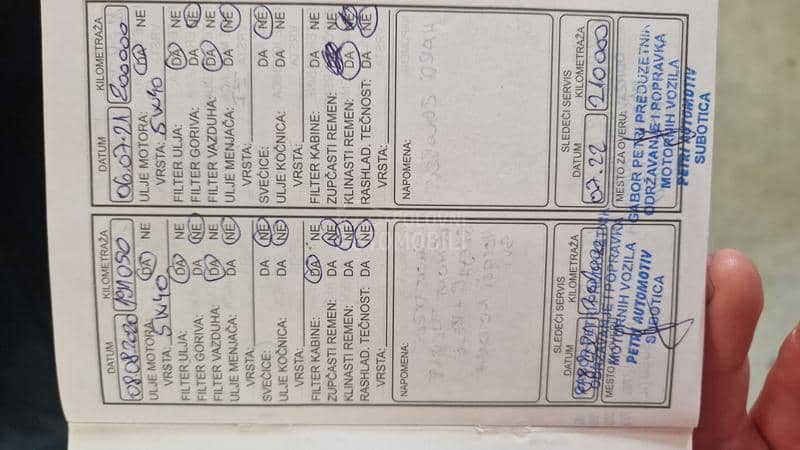 DATUM KILOMETRAŽA
06.07.21 200000
ULJE MOTORA: DA NE
VRSTA: 5W40
FILTER ULJA: DA NE
FILTER GORIVA: DA NE
FILTER VAZDUHA: DA NE
ULJE MENJAČA: DA NE
VRSTA:
SVEĆICE: DA NE
ULJE KOČNICA: DA NE
VRSTA:
FILTER KABINE: DA NE
ZUPČASTI REMEN: NE
KLINASTI REMEN: DA NE
RASHLAD. TEČNOST: DA NE
VRSTA:
NAPOMENA:
SLEDEĆI SERVIS
DATUM KILOMETRAŽA
07.22 210000
MESTO ZA OVERU:
GABOR PETRI PREDUZETNIK
ODRŽAVANJE I POPRAVKA
MOTORNIH VOZILA
PETRI AUTOMOTIV
SUBOTICA
DATUM KILOMETRAŽA
08.08.2020 191050
ULJE MOTORA: DA NE
VRSTA: 5W40
FILTER ULJA: DA NE
FILTER GORIVA: DA NE
FILTER VAZDUHA: DA NE
ULJE MENJAČA: DA NE
VRSTA:
SVEĆICE: DA NE
ULJE KOČNICA: DA NE
VRSTA:
FILTER KABINE: DA NE
ZUPČASTI REMEN: DA NE
KLINASTI REMEN: DA NE
RASHLAD. TEČNOST: DA NE
VRSTA:
NAPOMENA:
SLEDEĆI SERVIS
DATUM KILOMETRAŽA
MESTO
ODRŽAVANJE I POPRAVKA
MOTORNIH VOZILA
PETRI AUTOMOTIV
SUBOTICA